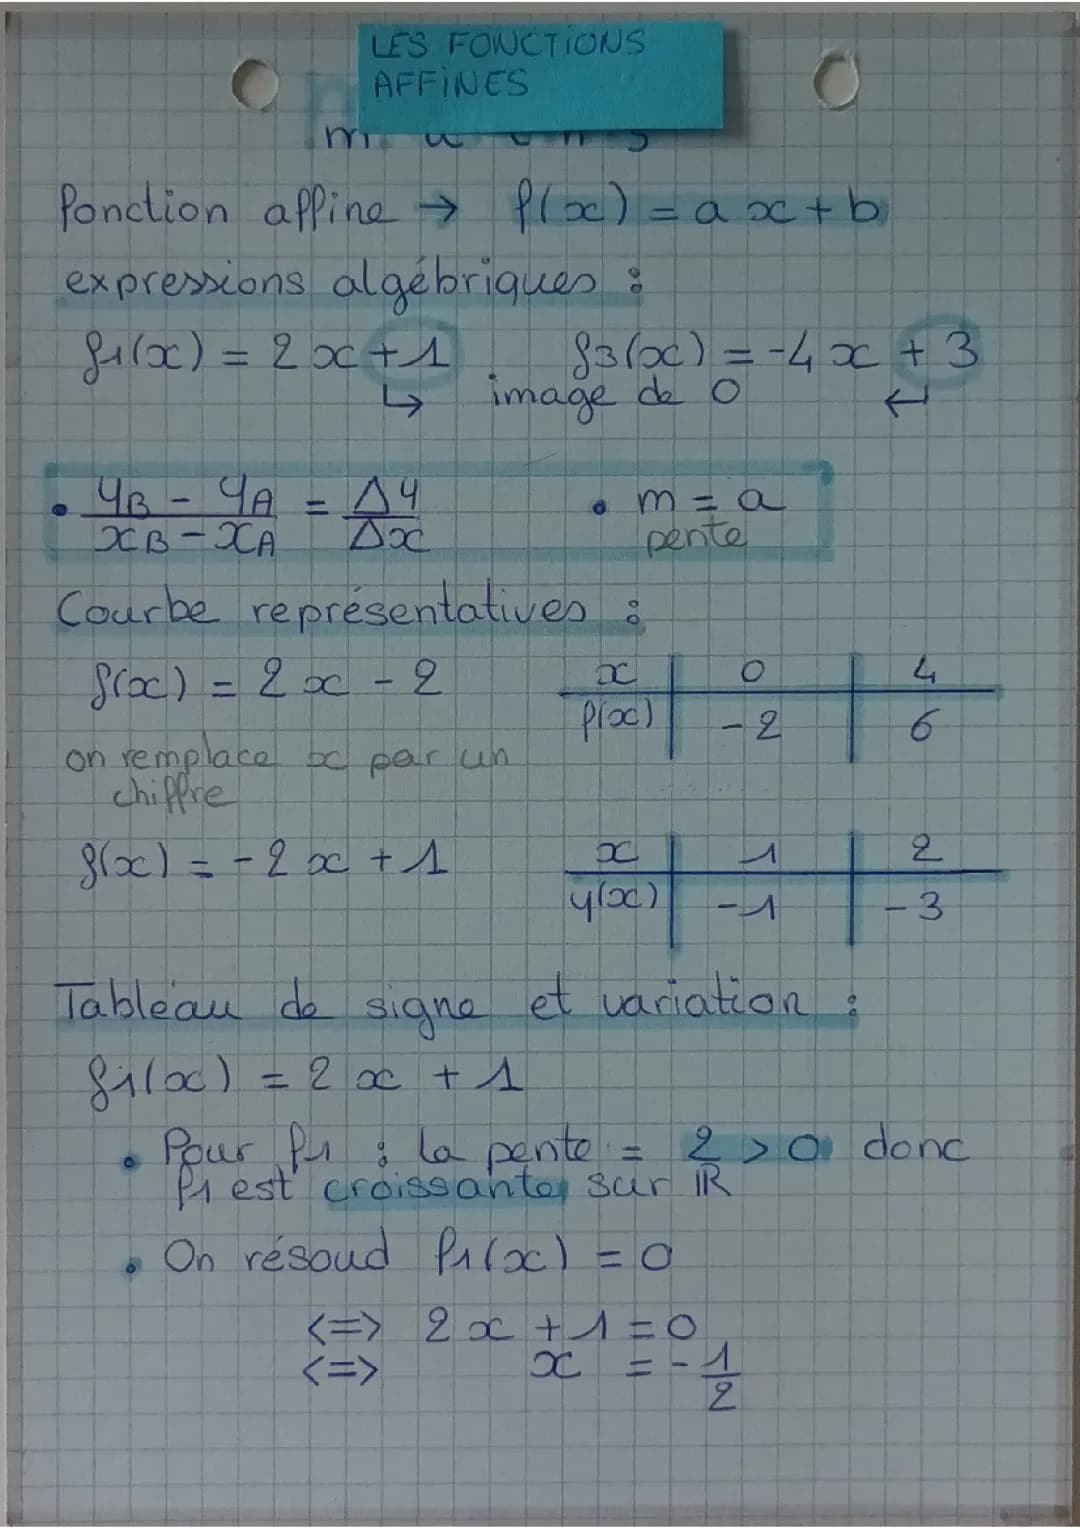 LES FONCTIONS
AFFINES
m a t h s
Fonction affine → f(x) = ax + b
expressions algébriques :
f1(x) = 2x + 1 f3(x) = -4x + 3
↳ image de 0 ↵
• yB - yA / xB - xA = Δy / Δx • m = a
pente
Courbe représentatives :
f(x) = 2x - 2
x | 0 | 4
f(x) | -2 | 6
on remplace x par un
chiffre
g(x) = -2x + 1
x | 1 | 2
y(x) | -1 | -3
Tableau de signe et variation :
f1(x) = 2x + 1
• Pour f1 : la pente = 2 > 0 donc
f1 est croissante sur ℝ
• On résoud f1(x) = 0
<=> 2x + 1 = 0
<=> x = -1/2